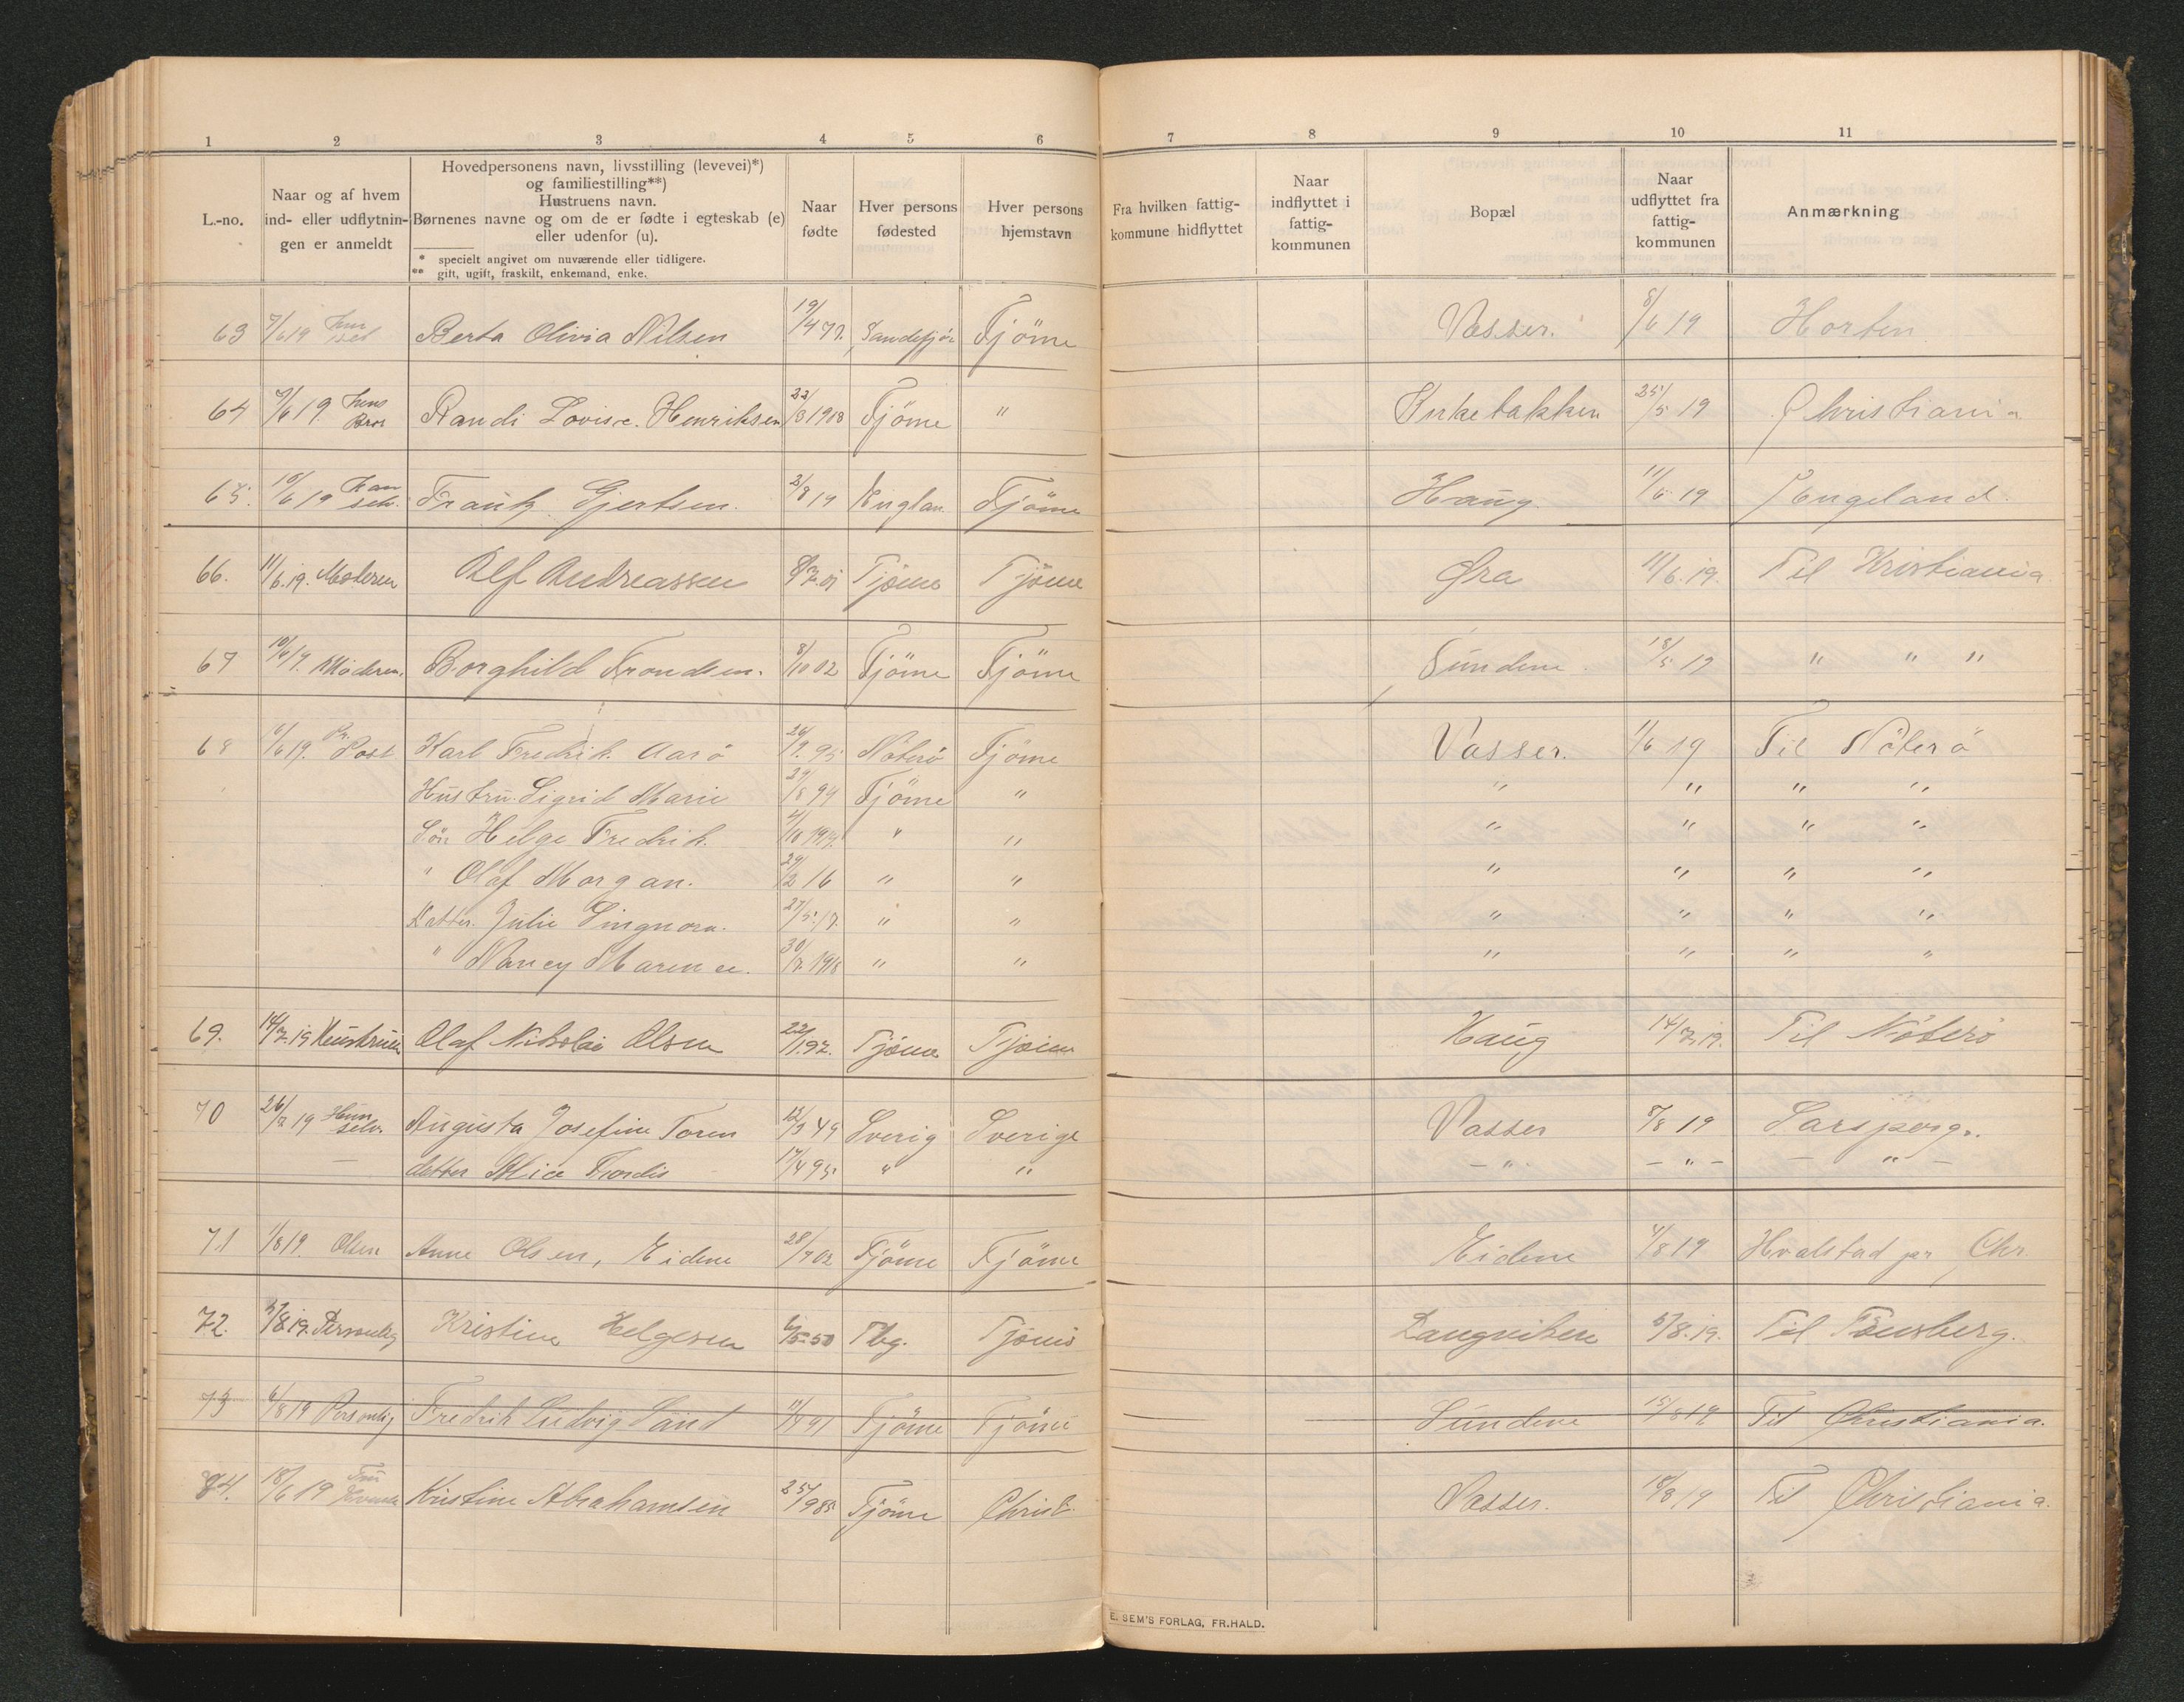 1 2 3 4 5 6 7 8 9 10 11
L.-no.
Naar og af hvem
ind- eller udflytnin-
gen er anmeldt
Hovedpersonens navn, livsstilling (levevei)*)
og familiestilling**)
Hustruens navn.
Børnenes navne og om de er fødte i egteskab (e)
eller udenfor (u).
* specielt angivet om nuværende eller tidligere.
** gift, ugift, fraskilt, enkemand, enke.
Naar
fødte
Hver persons
fødested
Hver persons
hjemstavn
Fra hvilken fattig-
kommune hidflyttet
Naar
indflyttet i
fattig-
kommunen
Bopæl
Naar
udflyttet fra
fattig-
kommunen
Anmærkning
63 7/6 19 Berta Olivia Nilsen 19/4 77. Sandefjor Tjöme Vasser. 8/6 19 Horten
64 7/6 19. Hens Bror Randi Lovise. Henriksen 22/8 1908 Tjöme " Kirkebakken 25/5 19 Christiania
65. 10/6 19 Han selv. Frantz Gjertsen. 2/8 14 Englan Tjöme Haug 11/6 19 Engeland.
66. 11/6.19. Moderen Alf Andreassen Tjøme Tjøme Øra 11/6.19. Til Kristiania
67 10/6 19. Moderen. Borghild Trondsen. 8/10 02 Tjöme Tjöme Sundene. 18/5 19 " " "
68 6/6 19. Pr. Post Karl Fredrik Aarö 26/9. 95 Nöterö Tjöme Vasser. 1/6 19 Til Nöterö
Hustru. Sigrid Marie 29/8 94 Tjöme " " " " "
Sön Helge Fredrik. " " " " " "
" Olaf Morgan. 29/2 16 " " " " " "
Datter. Julie Singnora. 27/5.17. " " " " " "
" Nancy Marence. 30/7 1918 " " " " " "
69. 14/7.19 Hustruen Olaf Nikolai Olsen 22/1.97. Tjøme Tjøme Haug 14/7.19. Til Nöterö
70 26/7 19 Hun selv. Augusta Josefine Toren 12/9 49 Sverig Sverige Vasser 8/8 19 Sarsporg.
datter Alice Tordis 17/4 95. " " - " - - " - - " -
71 1/8 19. Olsen Anne Olsen, Eidene 28/7 02 Tjöme Tjöme Eidene 4/8 19 Hvalstad pr Chr.
72. 5/8 19. Personlig Kristine Helgesen 6/5-50 Tbg. Tjømö Langviken 5/8.19. Til Tønsberg.
73 6/8 19 Personlig Fredrik Ludvig Sand 11/8 91 Tjöme Tjöme Sundene 15/8 19 Til Christiania.
84. 18/6 19 Kristine Abrahamsen 25/9 85 Tjöme Christ. Vasser. 18/8 19 Til Christiania.
E. SEM'S FORLAG, FR.HALD.